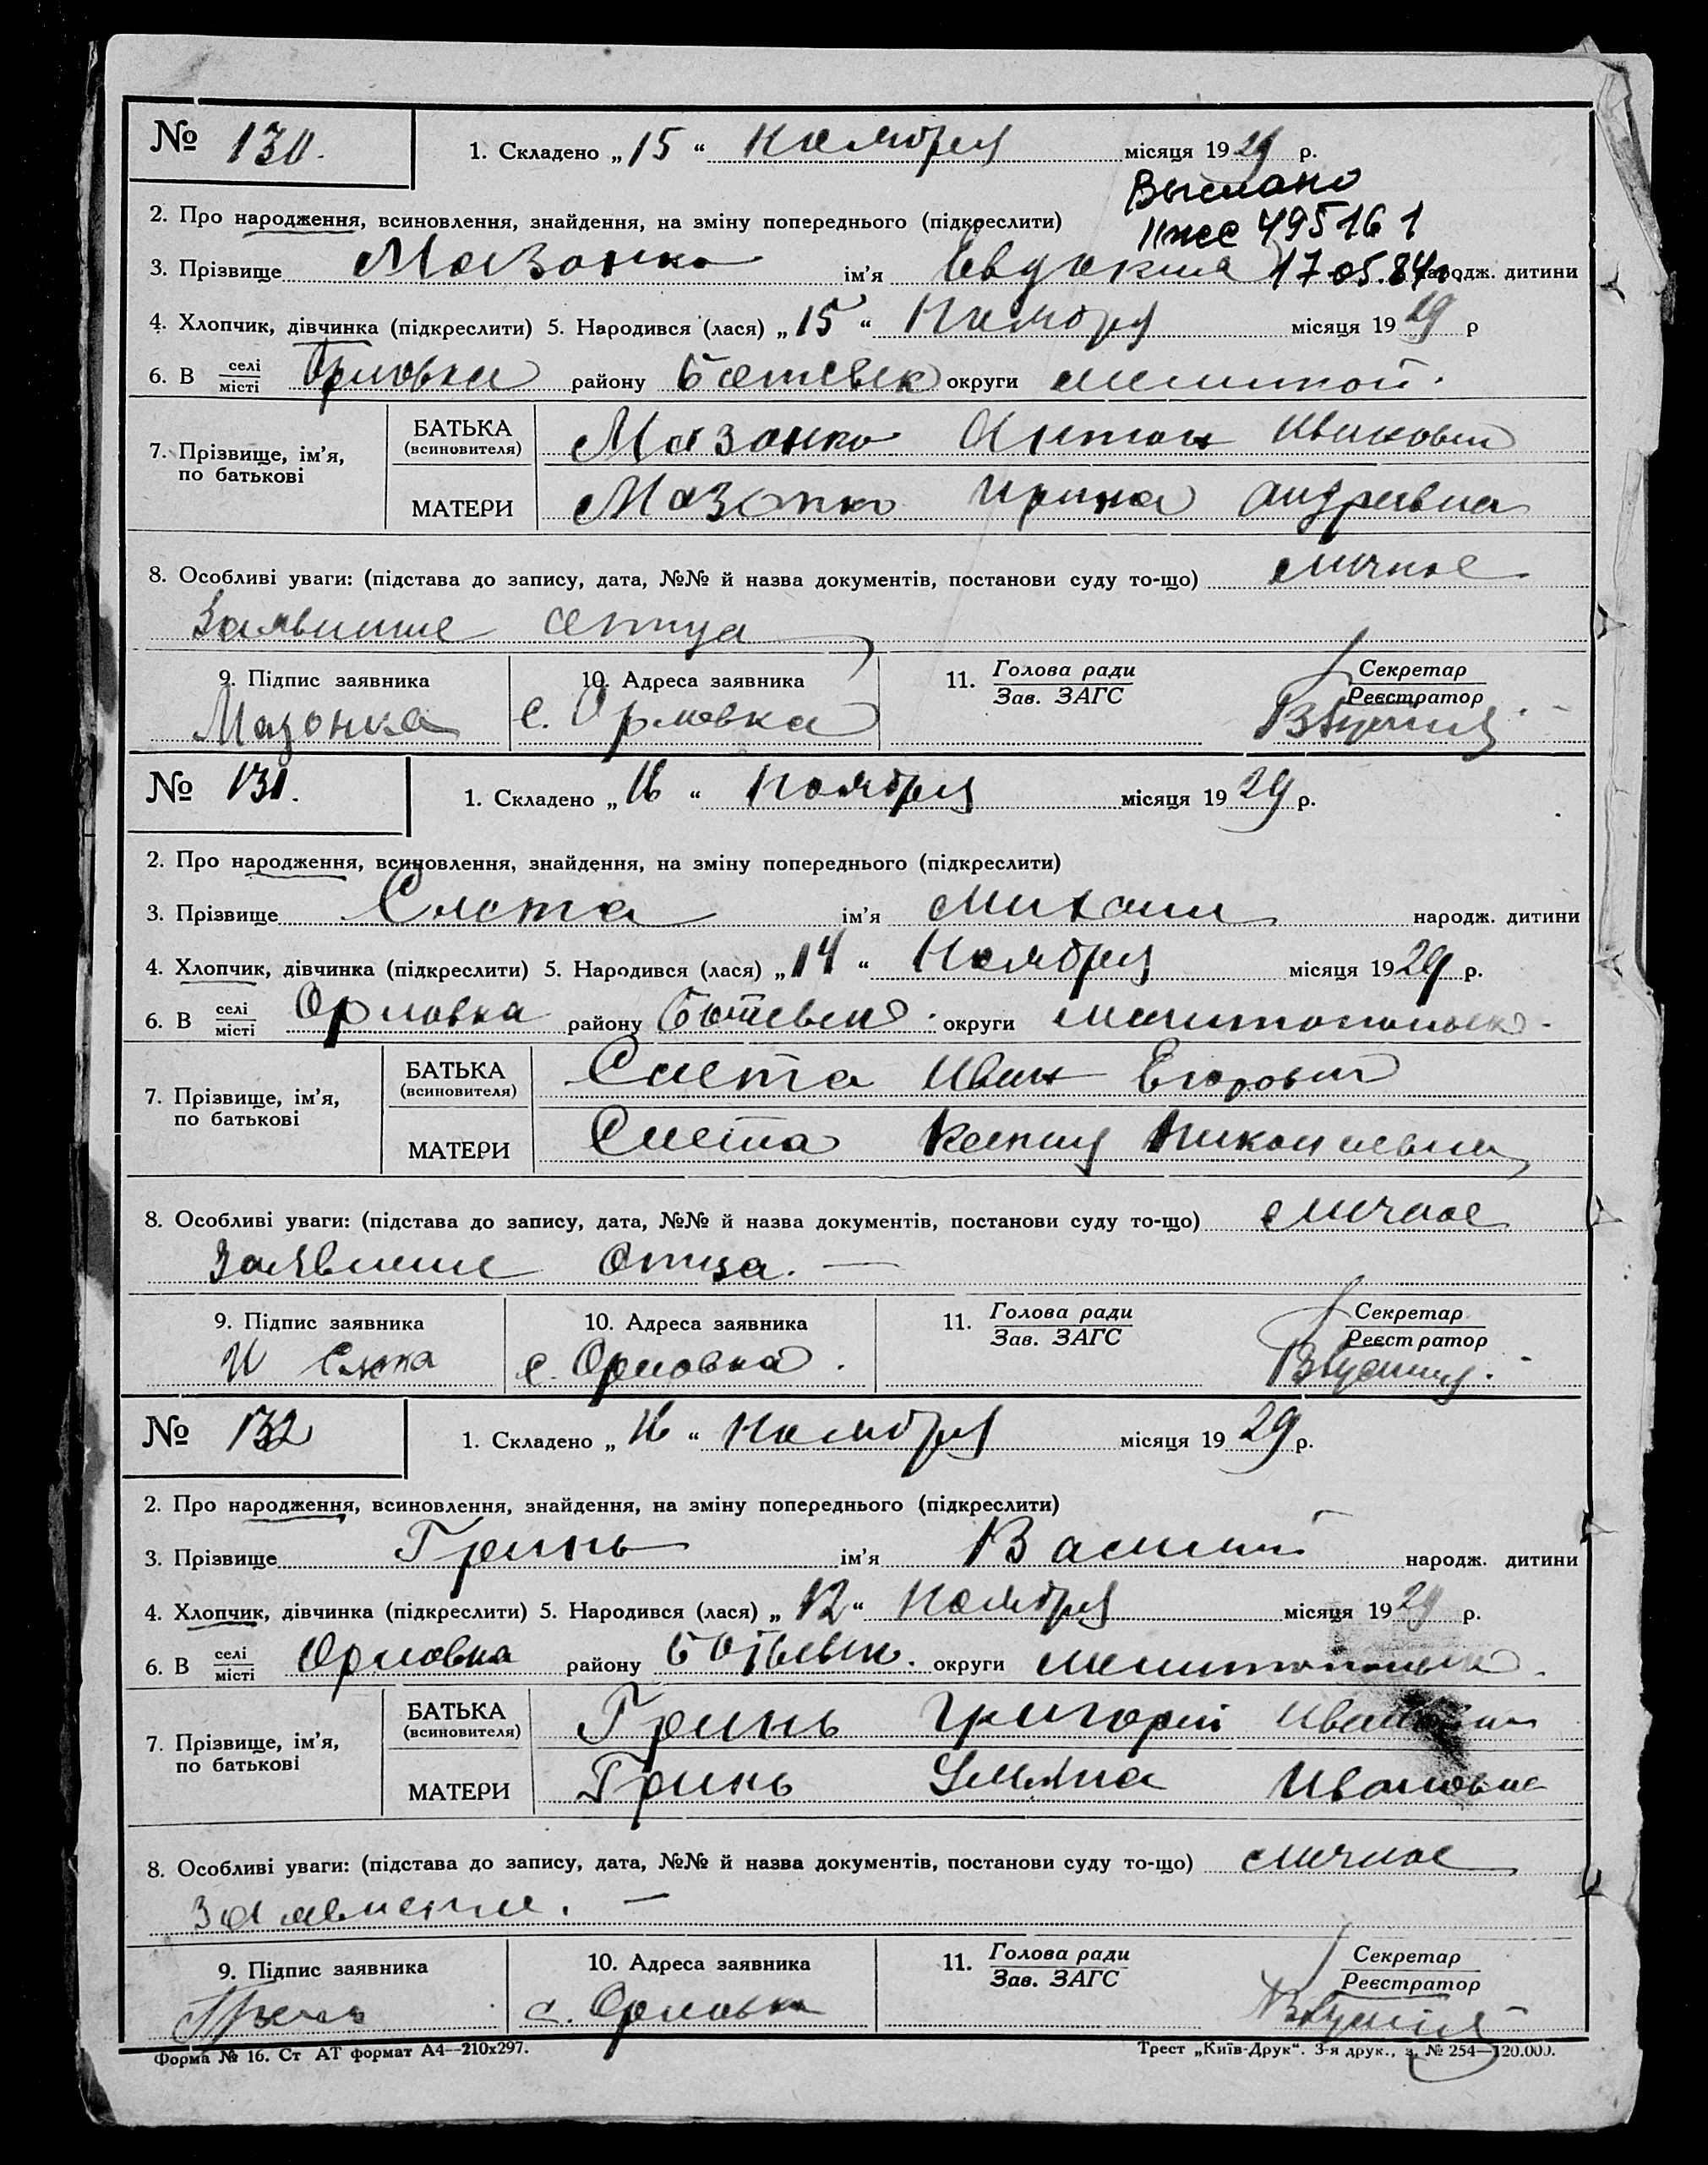 № 130.
1. Складено „15“ Ноября місяця 1929 р.
Выслано
495161
2. Про народження, всиновлення, знайдення, на зміну попереднього (підкреслити)
17.05.84г.
3. Прізвище Мазонко ім’я Евдокия народж. дитини
4. Хлопчик, дівчинка (підкреслити) 5. Народився (лася) „15“ Ноября місяця 1929 р
6. В селі місті Орловка району Ботевск округи мелитоп.
7. Прізвище, ім’я, по батькові
БАТЬКА (всиновителя) Мазонко Антон Иванович
МАТЕРИ Мазонко Ирина Андреевна
8. Особливі уваги: (підстава до запису, дата, №№ й назва документів, постанови суду то-що) личное
Заявление отца
9. Підпис заявника 10. Адреса заявника 11. Голова ради Зав. ЗАГС Секретар Реєстратор
Мазонка с. Орловка
№ 131.
1. Складено „16“ Ноября місяця 1929 р.
2. Про народження, всиновлення, знайдення, на зміну попереднього (підкреслити)
3. Прізвище Слета ім’я Михаил народж. дитини
4. Хлопчик, дівчинка (підкреслити) 5. Народився (лася) „14“ Ноября місяця 1929 р.
6. В селі місті Орловка району Ботевск. округи мелитопольск.
7. Прізвище, ім’я, по батькові
БАТЬКА (всиновителя) Слета Иван Егорович
МАТЕРИ Слета Ксения Николаевна
8. Особливі уваги: (підстава до запису, дата, №№ й назва документів, постанови суду то-що) личное
Заявление отца. —
9. Підпис заявника 10. Адреса заявника 11. Голова ради Зав. ЗАГС Секретар Реєстратор
И с. Орловка.
№ 132
1. Складено „16“ Ноября місяця 1929 р.
2. Про народження, всиновлення, знайдення, на зміну попереднього (підкреслити)
3. Прізвище Гринь ім’я Василий народж. дитини
4. Хлопчик, дівчинка (підкреслити) 5. Народився (лася) „12“ Ноября місяця 1929 р.
6. В селі місті Орловка району Ботьевск. округи мелитопольск.
7. Прізвище, ім’я, по батькові
БАТЬКА (всиновителя) Гринь Григорий Иванович
МАТЕРИ Гринь Ульяна Ивановна
8. Особливі уваги: (підстава до запису, дата, №№ й назва документів, постанови суду то-що) личное
Заявление. —
9. Підпис заявника 10. Адреса заявника 11. Голова ради Зав. ЗАГС Секретар Реєстратор
с. Орловка
Форма № 16. Ст АТ формат А4—210х297. Трест „Київ-Друк“. 3-я друк., з. № 254—120.000.